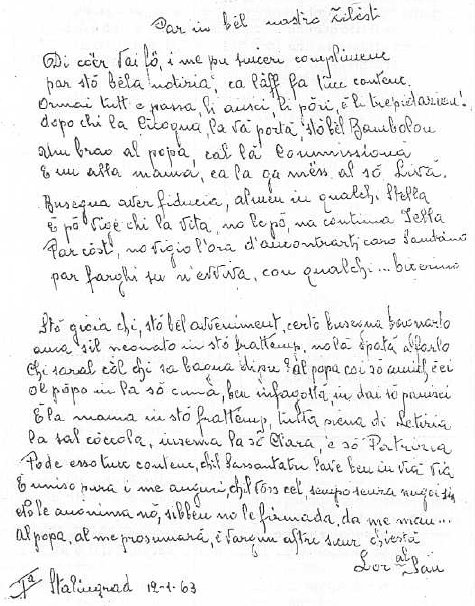 Par in bèl nostro Zilèst
Di cöer Vai fô, i me pu sinceri complimenc
par stô bèla notizia, ca l'àff fa tücc contenc.
Ormai tutt e passa, li ansci, li pôri, è li trepidaziun!
dopo chi la Cicogna, la và porta, stô bèl Bambolou
Un brao al popà, cal là Commissionà
E un alla mama, ca la ga mèss, al sô Livà.
Busegna aver fiducia, almen in qualchi Stella
È pô vigè chi la vita, no le pô, na continua Jella
Par còsti, no vigio l'ora d'ancontrarti caro
par farghi su n'evviva, con qualchi... bicerino
Stô gioia chi, stô bèl avveniment, certo busegna
ama s'il neonato in stô frattemp, no là spatà a farlo
Chi saral còl chi sa bagna dipu? al popà coi sô amich è ei
ol pôpo in la sô cunà, ben infagottà, in dai sô panisci
È la mama in stô frattemp, tutta piena di Letizia
la sal còccola, insema la sô Clara, e sô Patrizia
Pode esso tücc contenc, chil Sarsantatri l'ave ben in via
E uniso pura i me auguri, chil fôss cèl, sempo senza nugoi
No le anonima nô, sibbèn no le firmada, da me man...
Al popà, al me prosumarà, è vargun altri
Lor al Sau
Iª Stalingrad 12-1-63